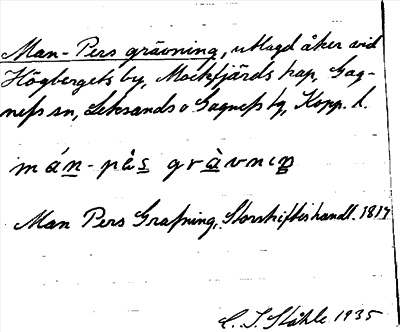 Man-Pers grävning, utlagd åker vid
Högbergets by, Mockfjärds kap, Gag-
nefs sn, Leksands o Gagnefs tg, Kopp. l.
mán-pä̀s gràvnıŋ
Man Pers Grafning, Storskifteshandl. 1819
C. I. Ståhle 1935